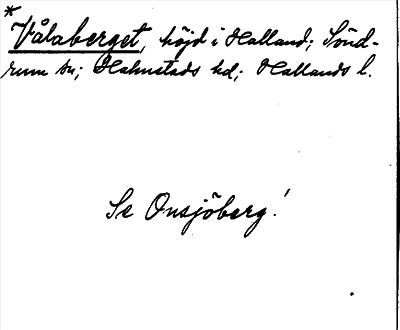 *
Vålaberget, höjd i Halland; Sönd-
rum sn; Halmstads hd; Hallands l.
Se Onsjöberg!